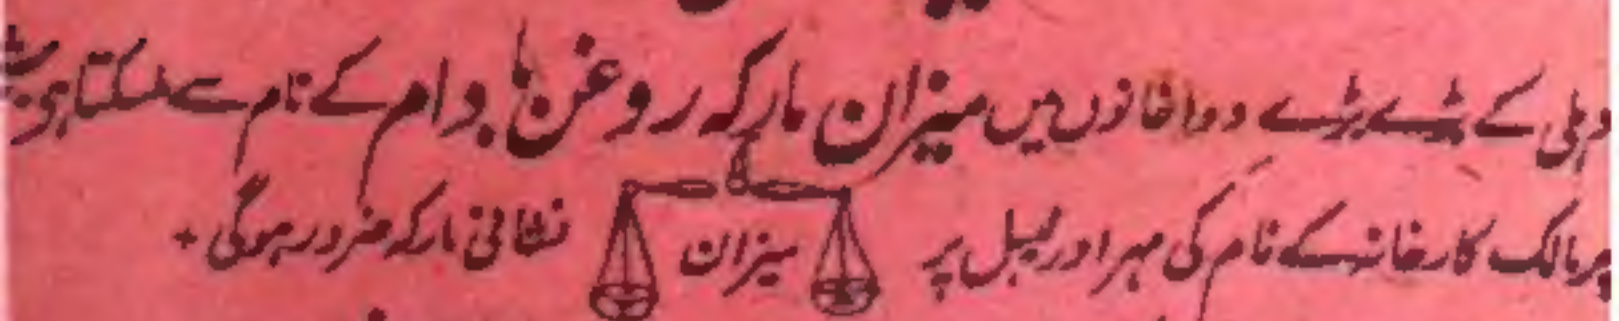 دہلی کے بڑے بڑے دواخانوں میں میزان مارکہ روغن بادام کے نام سے ملسکتا ہی
پر مالک کارخانہ کے نام کی مہر اور لیبل پر میزان نشانی مارکہ ضرور ہوگی